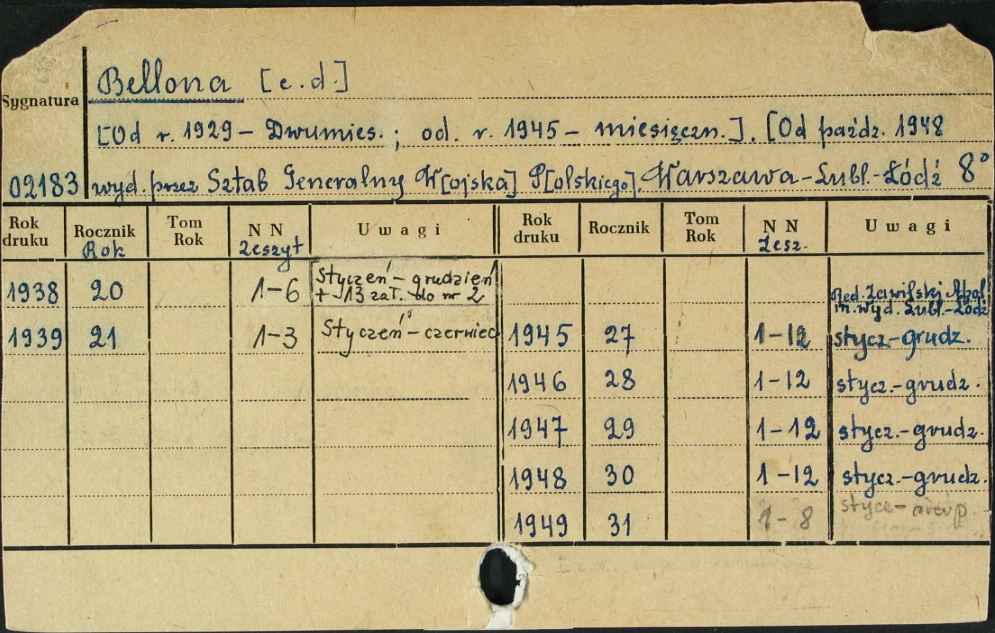 Bellona [c.d.]
Sygnatura
[Od r. 1929 – Dwumies. ; od. r. 1945 – miesięczn.]. [Od paźdz. 1948
02183 wyd. przez Sztab Generalny W[ojska] P[olskiego]. Warszawa-Lubl.-Łódź 8°
Rok druku Rocznik Rok Tom Rok NN Zeszyt Uwagi Rok druku Rocznik Tom Rok NN Zesz. Uwagi
1938 20 1-6 Styczeń – grudzień
+ 13 zał. do nr 2
Red.
m. wyd. Lubl.-Łódź
1939 21 1-3 Styczeń – czerwiec 1945 27 1-12 stycz-grudz.
1946 28 1-12 stycz.-grudz.
1947 29 1-12 stycz.-grudz.
1948 30 1-12 stycz.-grudz.
1949 31 1-8